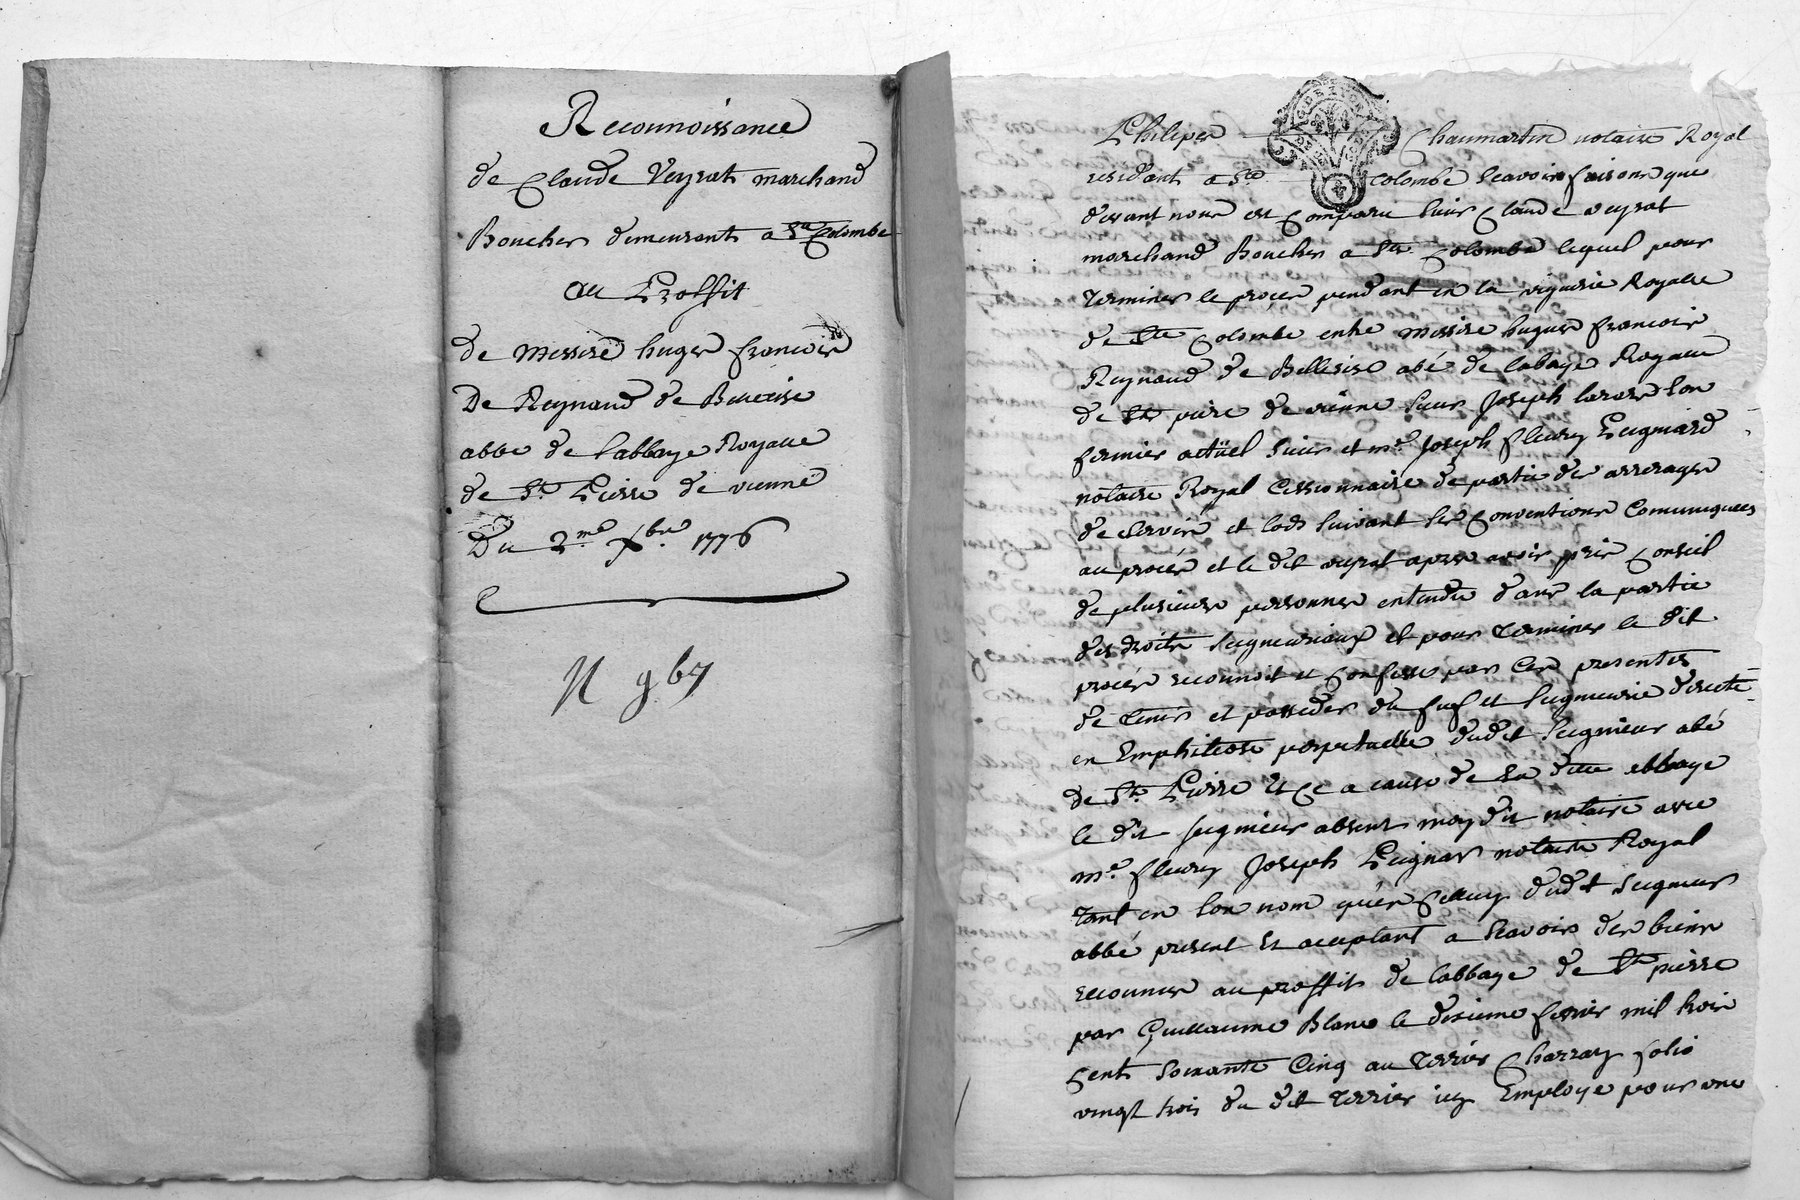 Reconnoissance
de Claude Veyrat marchand
Boucher demeurant a Ste Colombe
au Proffit
de messire huges francois
De Reynaud de Bellecise
abbe de labbaye Royalle
de St Pierre de vienne
Du 2me Xbre 1776
N 967
Philiper Chaumartin notaire Royal
residant a Ste Colombe scavoir faisons que
devant nous est comparu sieur Claude veyrat
marchand Boucher a Ste Colombe lequel pour
terminer le procer pendant en la viguerie Royalle
de Ste Colombe entre messire hugues francois
Reynaud de Bellesise abé de labaye Royalle
de St pierre de vienne sieur Joseph son
fermier actüel sieur et me Joseph fleury Peigniard
notaire Royal Cessionnaire de partie des arrerages
de servis et lods suivant les Conventions Comuniquees
au procés et le dit veyrat apres avoir pris Conseil
de plusieurs personnes entendue dans la partie
des droits seigneuriaux et pour terminer le dit
procés reconnoit et Confesse par Ces presentes
de tenir et posseder du fief et seigneurie directe
en Emphiteose perpetuelle dudit seigneur abé
de St Pierre Et Ce a cause de sa ditte abbaye
le dit seigneur absent moy dit notaire avec
me fleury Joseph Peignar notaire Royal
tant en son nom qu'en Celluy dudit seigneur
abbé present et aceptant a scavoir des biens
reconnus au proffit de labbaye de St pierre
par Guillaume Blanc le dixieme fevrier mil trois
Cent soixante Cinq au terrier Charray folio
vingt trois du dit terrier icy Employe pour une